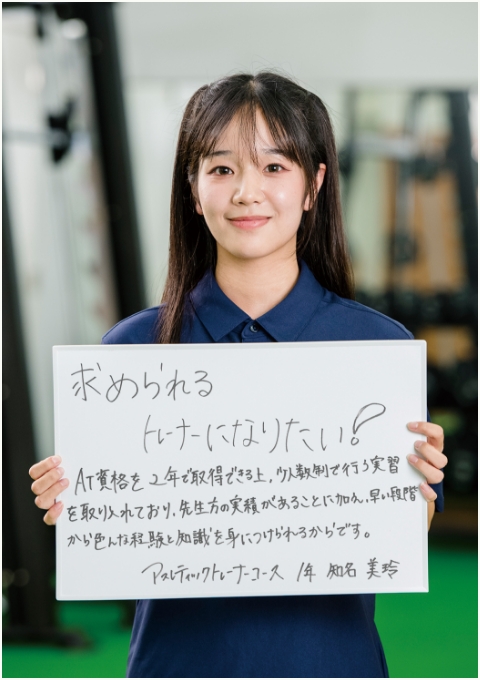 求められる
トレーナーになりたい!
AT資格を2年で取得できる上、少人数制で行う実習
を取り入れており、先生方の実績があることに加え、早い段階
から色んな経験と知識を身につけられるからです。
アスレティックトレーナーコース 1年 知名 美玲